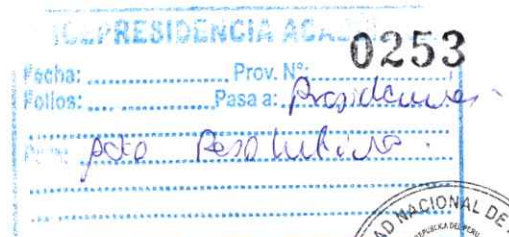 VICEPRESIDENCIA ACA
0253
Fecha: .................... Prov. N°:
Folios: .... ............ Pasa a: Presidencia
Para: acto Resolutivo.
AD NACIONAL DE
REPUBLICA DEL PERU